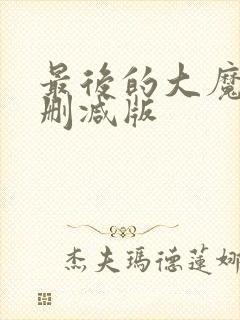 最後的大魔
删减版
杰夫瑪德蓮娜